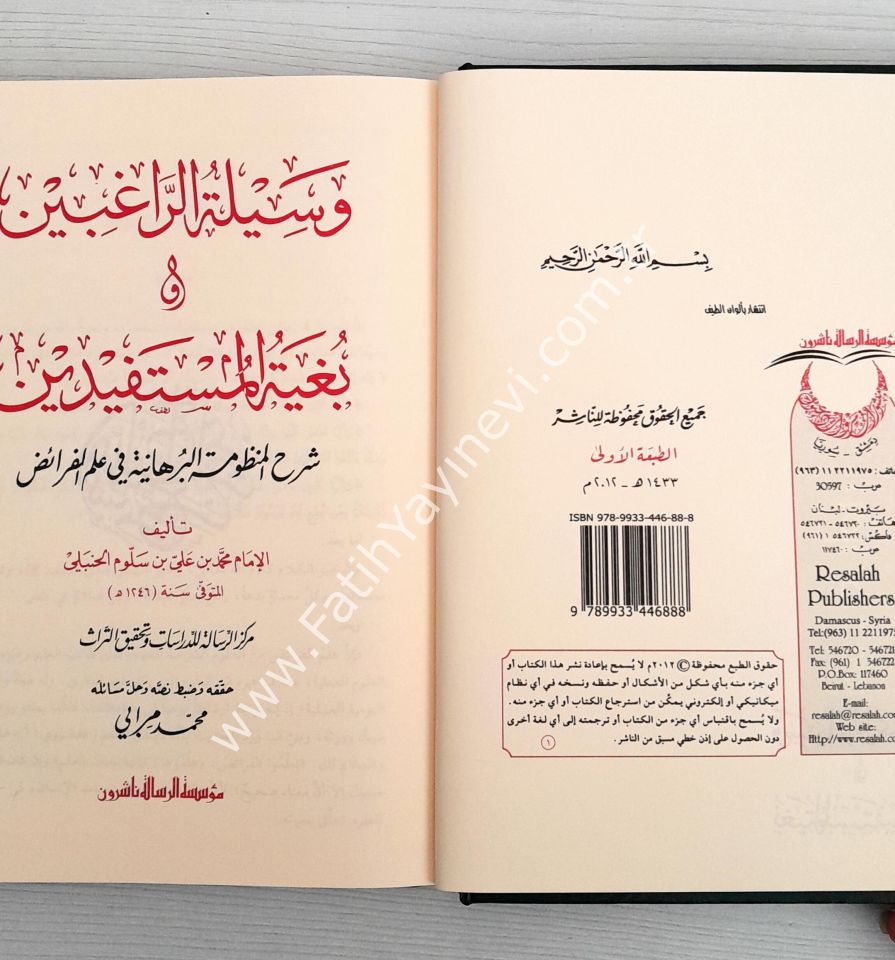 بِسْمِ اللَّهِ الرَّحْمٰنِ الرَّحِيمِ
انتشار بألوان الطيف
جميع الحقوق محفوظة للناشر
الطبعة الأولى
١٤٣٣ هـ - ٢٠١٢ م
ISBN 978-9933-446-88-8
9 789933 446888
حقوق الطبع محفوظة © ٢٠١٢م لا يُسمح بإعادة نشر هذا الكتاب أو
أي جزء منه بأي شكل من الأشكال أو حفظه ونسخه في أي نظام
ميكانيكي أو إلكتروني يمكّن من استرجاع الكتاب أو أي جزء منه.
ولا يُسمح باقتباس أي جزء من الكتاب أو ترجمته إلى أي لغة أخرى
دون الحصول على إذن خطي مسبق من الناشر.
١
مؤسسة الرسالة ناشرون
دمشق - سوريا
هاتف: ٢٢١١٩٧٥ ١١ (٩٦٣)
ص.ب: 30597
بيروت - لبنان
هاتف: ٥٤٦٧٢٠ - ٥٤٦٧٢١
فاكس: ٥٤٦٧٢٢ ١ (٩٦١)
ص.ب: ١١٧٤٦٠
Resalah
Publishers
Damascus - Syria
Tel:(963) 11 2211975
Tel: 546720 - 546721
Fax: (961) 1 546722
P.O.Box: 117460
Beirut - Lebanon
E-mail:
resalah@resalah.com
Web site:
Http://www.resalah.com
وَسِيلَةُ الرَّاغِبِينَ
وَ
بُغْيَةُ المُسْتَفِيدِين
شرح المنظومة البرهانية في علم الفرائض
تأليف
الإمام محمد بن علي بن سلوم الحنبلي
المتوفى سنة (١٢٤٦ هـ)
مركز الرسالة للدراسات وتحقيق التراث
حققه وضبط نصه وحل مسائله
محمد مرابي
مؤسسة الرسالة ناشرون
www.FatihYayinevi.com.tr